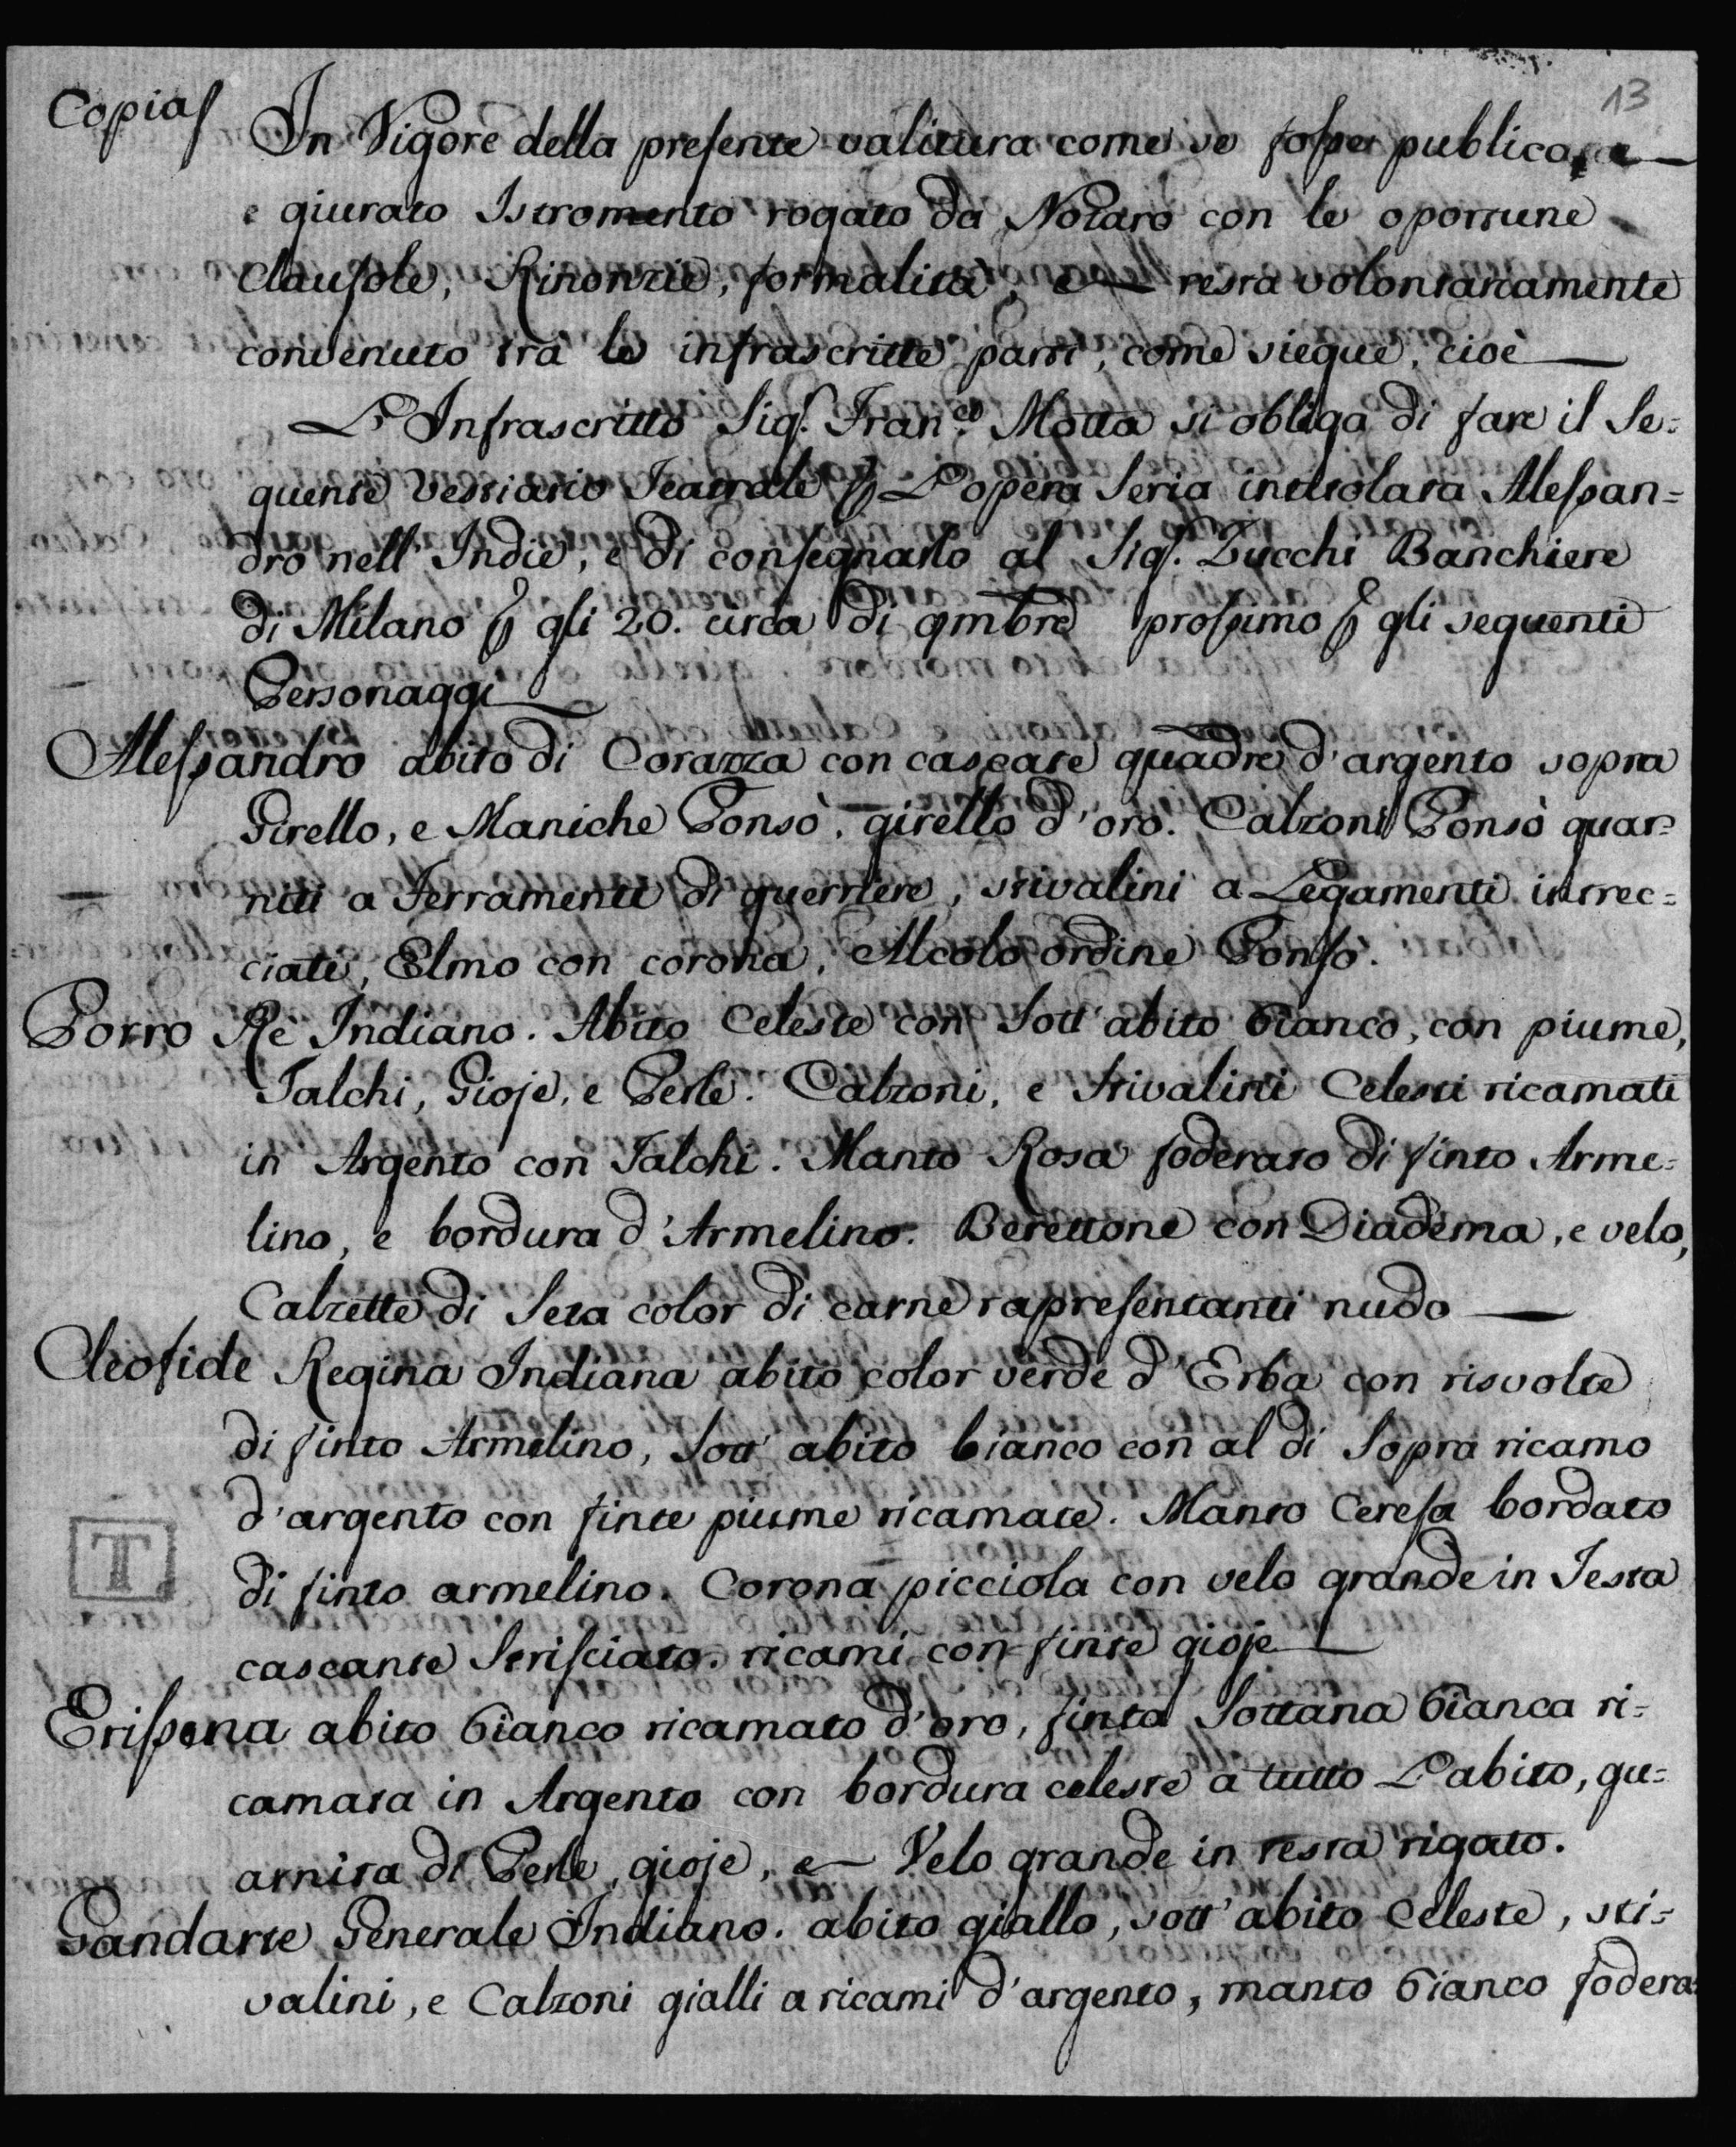 Copia
13
In Vigore della presente valitura come se fosse publico, e
e giurato Istromento rogato da Notaro con le oportune
Clausole, Rinonzie, formalità, e resta volontariamente
convenuto tra le infrascritte parti, come siegue, cioè
L'Infrascritto Sigr. Fran.co Motta si obliga di fare il Se:
quente Vestiario Teatrale per L'opera Seria intitolata Alessan=
dro nell' Indie, e di consegnarlo al Sigr. Zucchi Banchiere
di Milano per gli 20. circa di 9mbre prossimo per gli seguenti
Personaggi
Alessandro abito di Corazza con cascate quadre d'argento sopra
Girello, e Maniche Ponsò, girello d'oro. Calzoni Ponsò guar=
niti a Ferramenti di guerriere, stivalini a Legamenti intrec=
ciati, Elmo con corona, Al colo ordine Ponsò.
Porro Rè Indiano. Abito Celeste con Sott'abito bianco, con piume,
Talchi, Gioje, e Perle. Calzoni, e Stivalini Celesti ricamati
in Argento con Talchi. Manto Rosa foderato di finto Arme=
lino, e bordura d'Armelino. Berettone con Diadema, e velo,
Calzette di Seta color di carne rapresentanti nudo
Cleofide Regina Indiana abito color verde d'Erba con risvolte
di finto Armelino, Sott' abito bianco con al di Sopra ricamo
d'argento con finte piume ricamate. Manto Ceresa bordato
di finto armelino. Corona picciola con velo grande in Testa
cascante Strisciato. ricami con finte gioje
T
Erissena abito bianco ricamato d'oro, finta Sottana bianca ri=
camata in Argento con bordura celeste a tutto L'abito, gu=
arnita di Perle, gioje, e Velo grande in testa rigato.
Gandarte Generale Indiano. abito giallo, sott'abito Celeste, sti=
valini, e Calzoni gialli a ricami d'argento, manto bianco fodera=